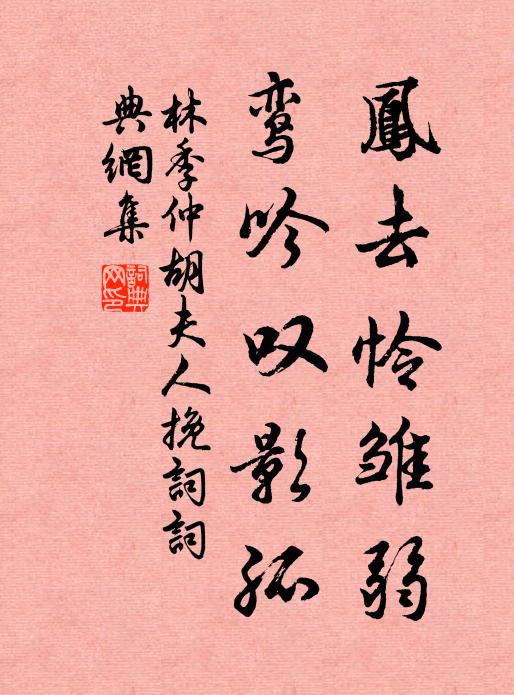 鳳去怜雏弱
鸾吟叹影孤
林季仲胡夫人挽詞詞
典網集
詞典网印